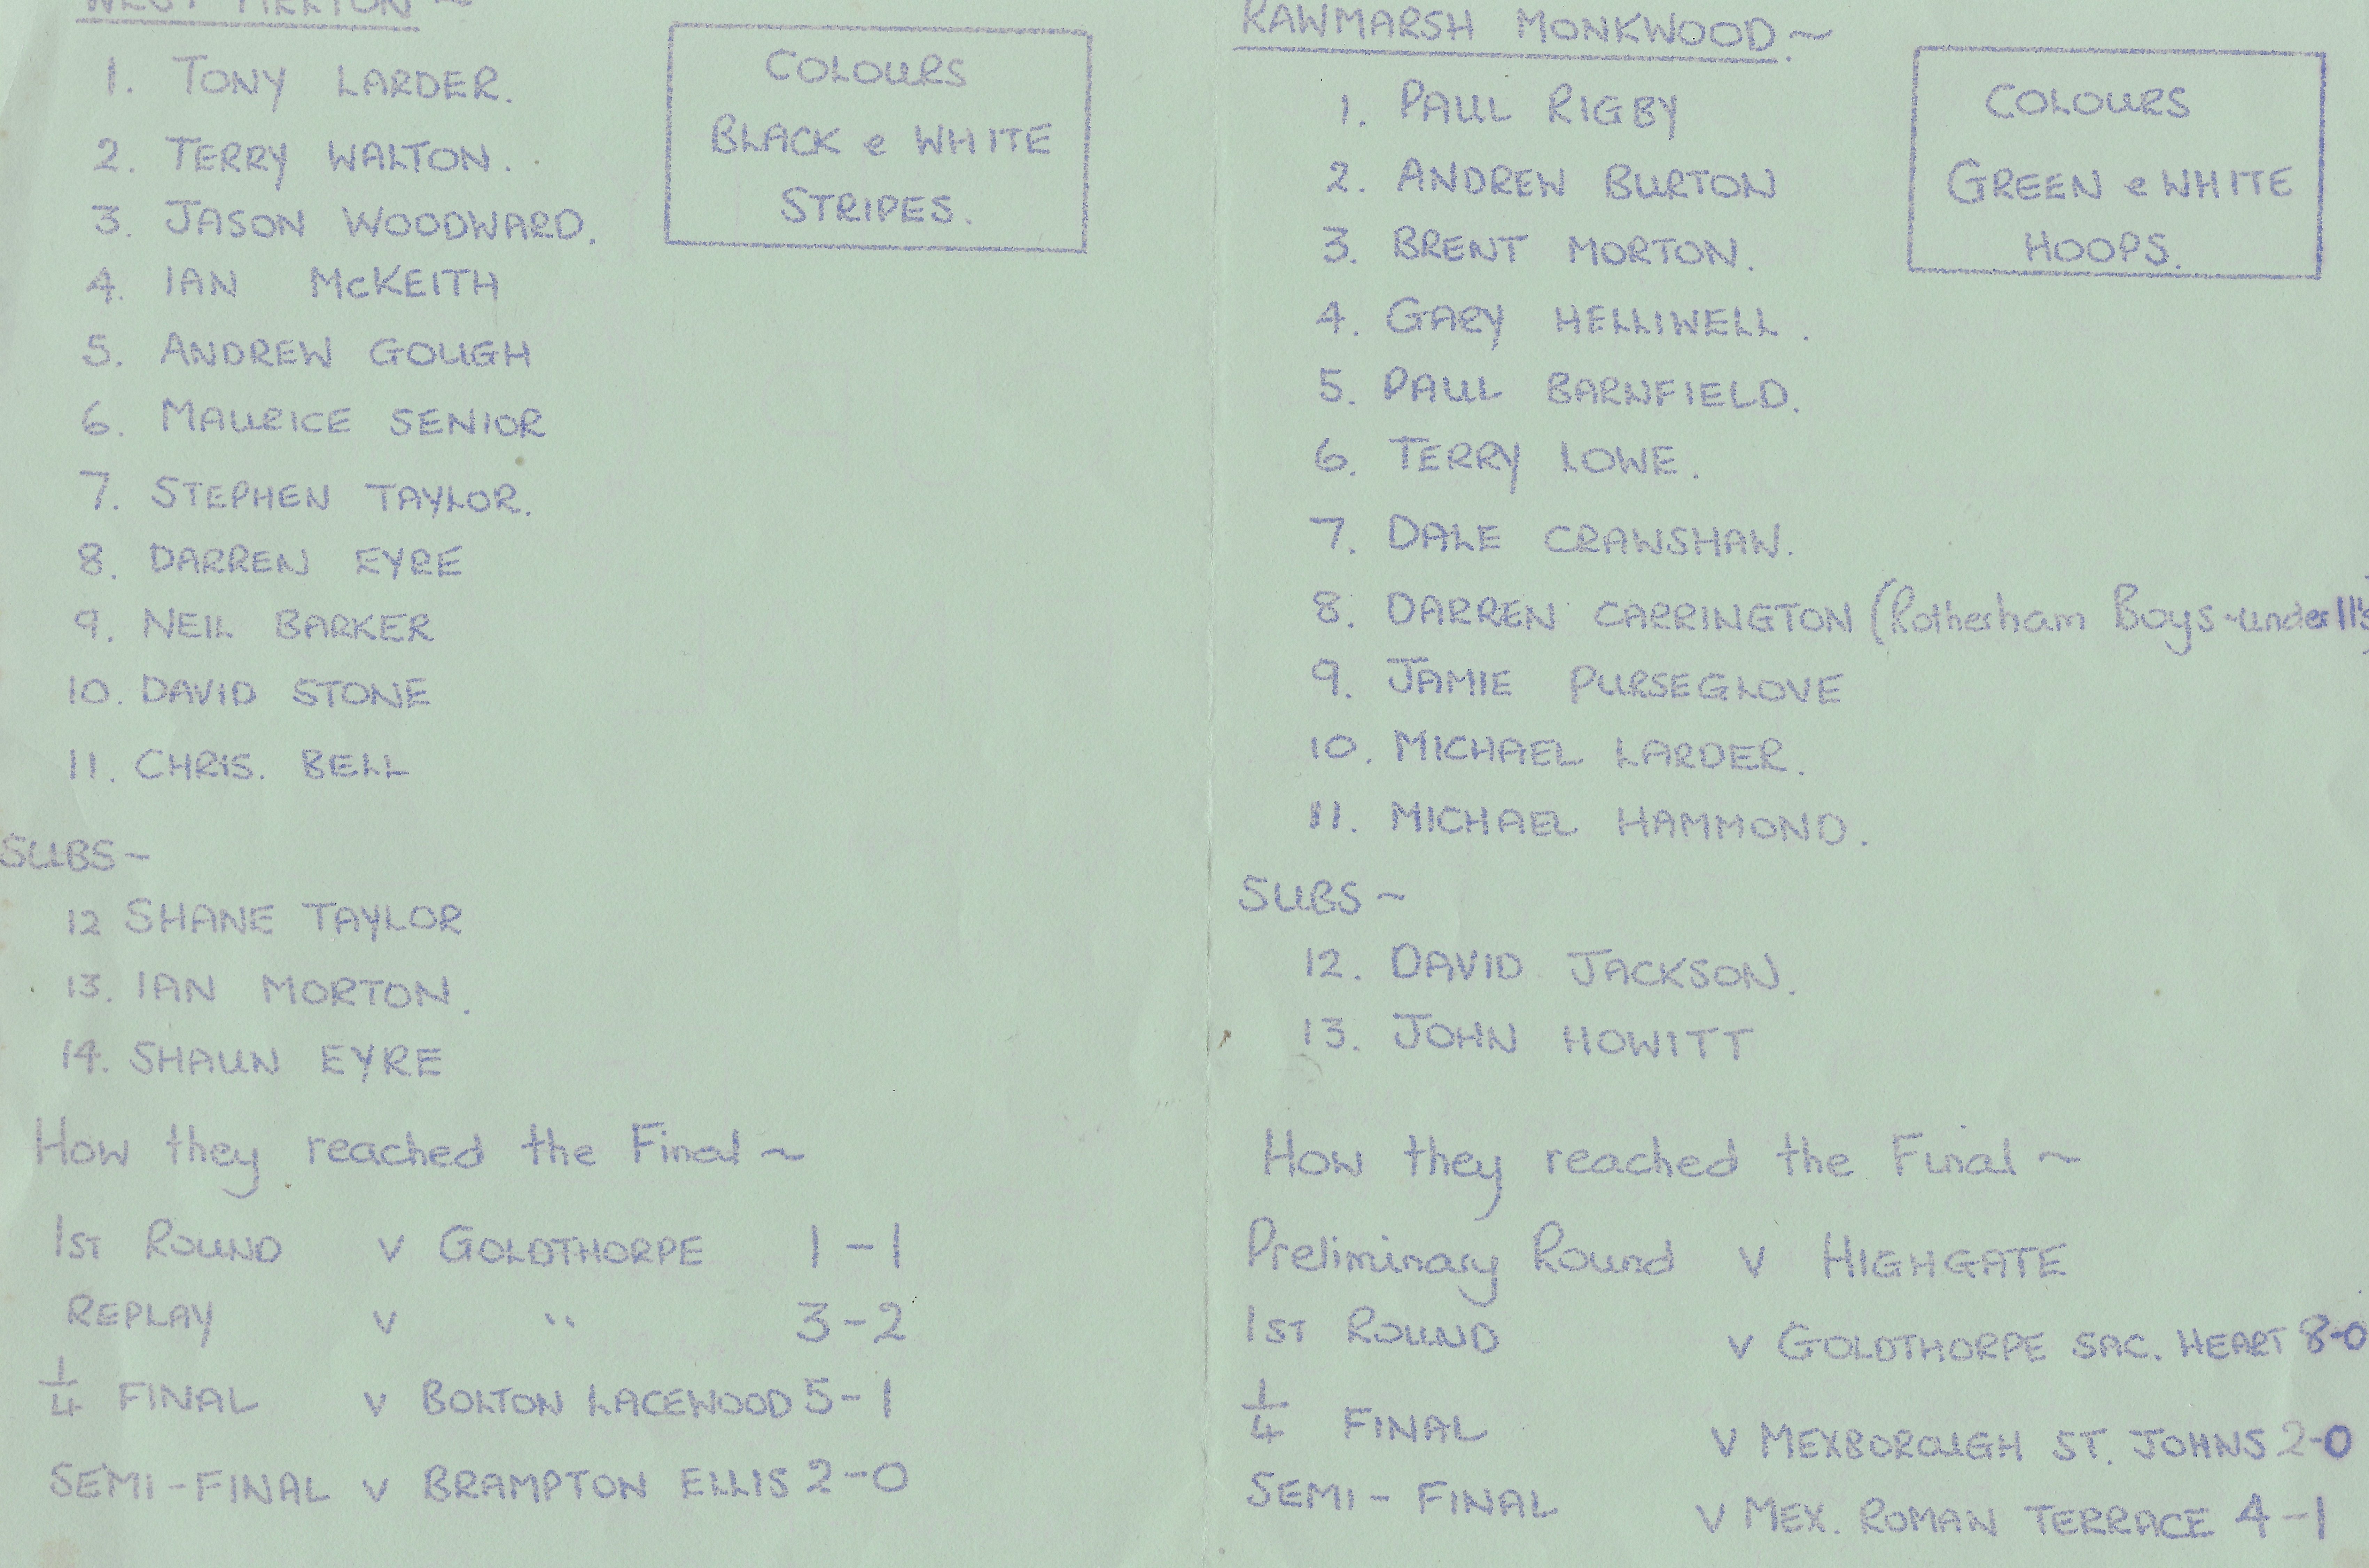 WEST MELTON ~
1. TONY LARDER.
2. TERRY WALTON.
3. JASON WOODWARD.
4. IAN McKEITH
5. ANDREW GOUGH
6. MAURICE SENIOR
7. STEPHEN TAYLOR.
8. DARREN EYRE
9. NEIL BARKER
10. DAVID STONE
11. CHRIS. BELL
COLOURS
BLACK e WHITE
STRIPES.
SUBS ~
12 SHANE TAYLOR
13. IAN MORTON.
14. SHAUN EYRE
How they reached the Final ~
1ST ROUND v GOLDTHORPE 1-1
REPLAY v " 3-2
1/4 FINAL v BOLTON LACEWOOD 5-1
SEMI-FINAL v BRAMPTON ELLIS 2-0
RAWMARSH MONKWOOD. ~
1. PAUL RIGBY
2. ANDREW BURTON
3. BRENT MORTON.
4. GARY HELLIWELL.
5. PAUL BARNFIELD.
6. TERRY LOWE.
7. DALE CRAWSHAW.
8. DARREN CARRINGTON (Rotherham Boys - under 11's)
9. JAMIE PURSEGLOVE
10. MICHAEL LARDER.
11. MICHAEL HAMMOND.
COLOURS
GREEN e WHITE
HOOPS.
SUBS ~
12. DAVID JACKSON.
13. JOHN HOWITT
How they reached the Final ~
Preliminary Round v HIGHGATE
1ST ROUND v GOLDTHORPE SAC. HEART 8-0
1/4 FINAL v MEXBOROUGH ST. JOHNS 2-0
SEMI-FINAL v MEX. ROMAN TERRACE 4-1